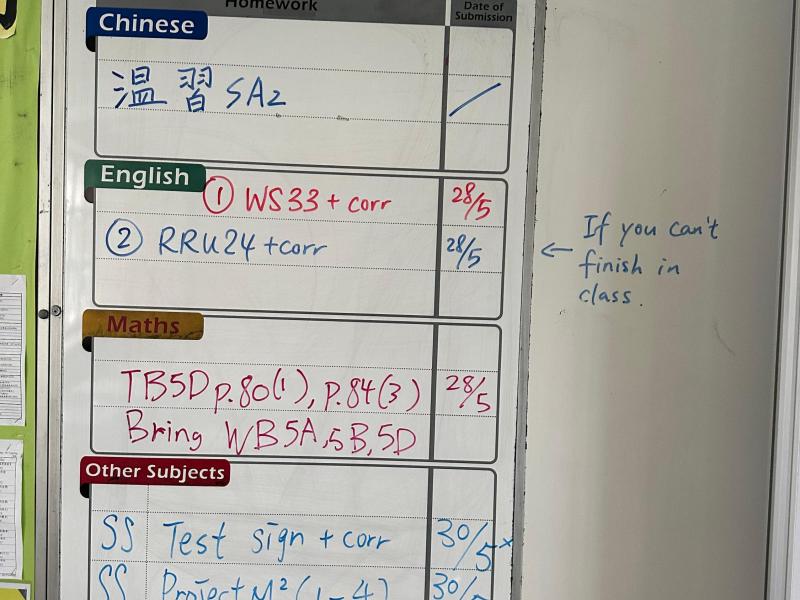 Homework Date of Submission
Chinese
温習 SA2 /
English
① WS33 + corr 28/5
② RRU24 + corr 28/5
← If you can't
finish in
class.
Maths
TB5D p.80(1), p.84(3) 28/5
Bring WB 5A, 5B, 5D
Other Subjects
SS Test sign + corr 30/5 x
SS Project M² (1-4) 30/